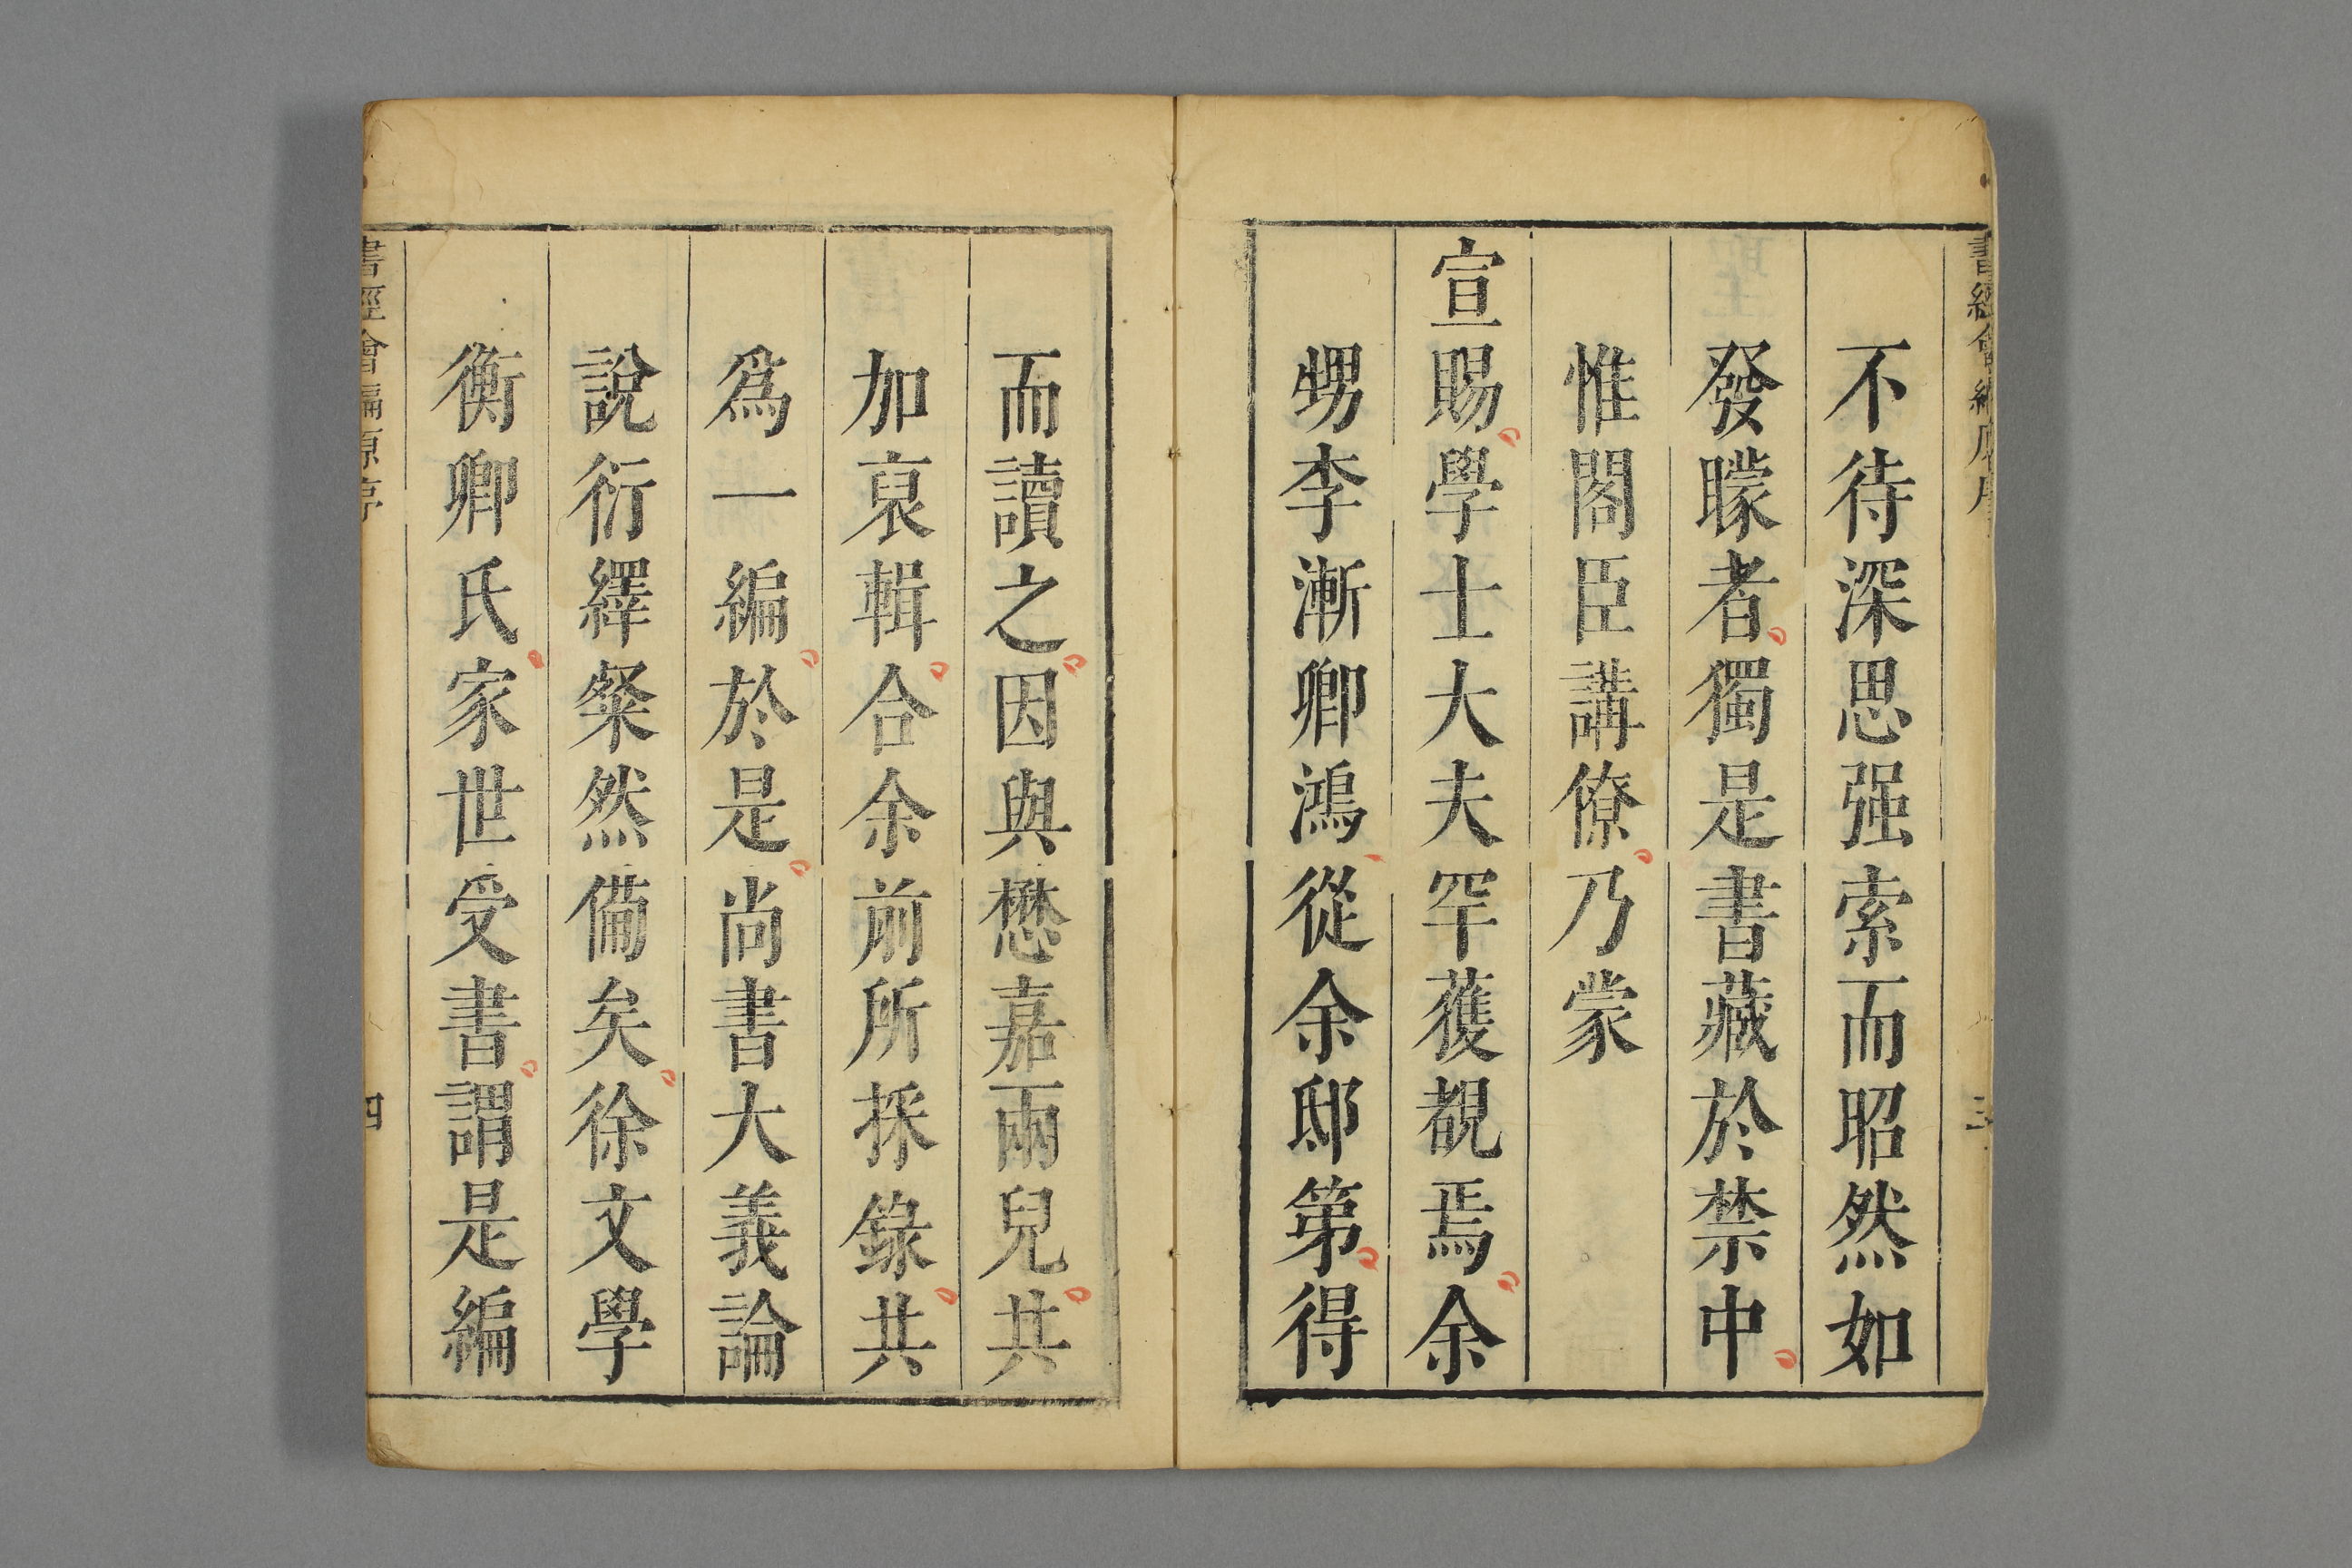 不待深思强索而昭然如
發矇者獨是書藏於禁中
惟閣臣講僚乃蒙
宣賜學士大夫罕獲覩焉余
甥李漸卿鴻從余邸第得
而讀之因與懋嘉兩兒共
加裒輯合余前所採錄共
爲一編於是尚書大義論
說衍繹粲然備矣徐文學
衡卿氏家世受書謂是編
四